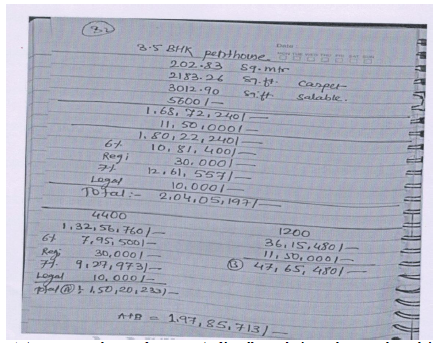 3.2
3.5 BHK penthouse
Date :
202.83 Sq.mtr
2183.26 Sq.ft. Carpet
3012.90 Sq.ft Salable.
5600/-
1,68,72,240/-
11,50,000/-
1,80,22,240/-
6% 10,81,400/-
Regi 30,000/-
7% 12,61,557/-
Legal 10,000/-
Total :- 2,04,05,197/-
4400
1,32,56,760/-
6% 7,95,500/-
Regi 30,000/-
7% 9,27,973/-
Legal 10,000/-
Total (A) : 1,50,20,233/-
1200
36,15,480/-
11,50,000/-
(B) 47,65,480/-
A+B = 1,97,85,713/-